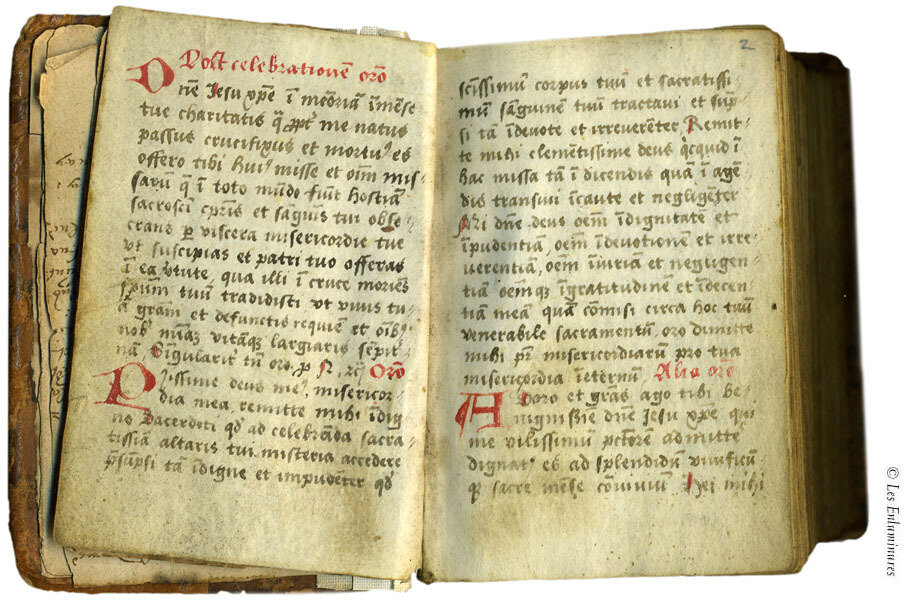 Post celebrationē orō
Dne Jesu xp̄e ī meōriā īmēse
tue charitatis q̄ ꝓpt̓ me natus
passus crucifixus et mortuꝰ es
offero tibi huiꝰ misse et oīm mis-
sarū q̄ ī toto mūdo fiūt hostiā
sacrosc̄i cp̄ris et sāguis tui obse-
crans ꝑ viscera misericordie tue
vt suscipias et patri tuo offeras
ī ea v̓tute, qua illi ī cruce moriēs
sp̄um tuū tradidisti vt viuis tu-
ā grām et defunctis requiē et oīb̓
nob̓ vitāqꝫ largiaris sēpit̓
nā. Singularit̓ tn̄ oro, ꝓ N, Orō
Piissime deus meꝰ, misericor-
dia mea, remitte mihi īdig
no Sacerdoti qd̓ ad celebrāda sacra-
tissiā altaris tui misteria accedere
p̄sūpsi tā īdigne et impudēter qd̓
2
sc̄issimū corpus tuū et sacratissi-
mū sāguinē tuū tractaui et sūp-
si tā īdevote et irreuerēter Remit-
te mihi clemētissime deus qcquid ī
hac missa tā ī dicendis quā ī agē
dis transiui īcaute et negligēter
dn̄e deus oēm īdignitatē et
īpudentiā, oēm īdevotionē et irre-
uerentiā, oēm īiuriā et negligen-
tiā oēmqꝫ īgratitudinē et īdecen
tiā meā quā cōmisi circa hoc tuū
venerabile sacramentū, oro dimitte
mihi pr̄ misericordiarū pro tua
misericordia īeternū Alia orō
Adoro et grās ago tibi be-
nignissie dn̄e Jesu xp̄e qui
me vilissimū pctōrē admitte
dignatꝰ es ad splendidū viuificū-
qꝫ sacre mēse cōuiuiū Hei mihi
© Les Enluminures